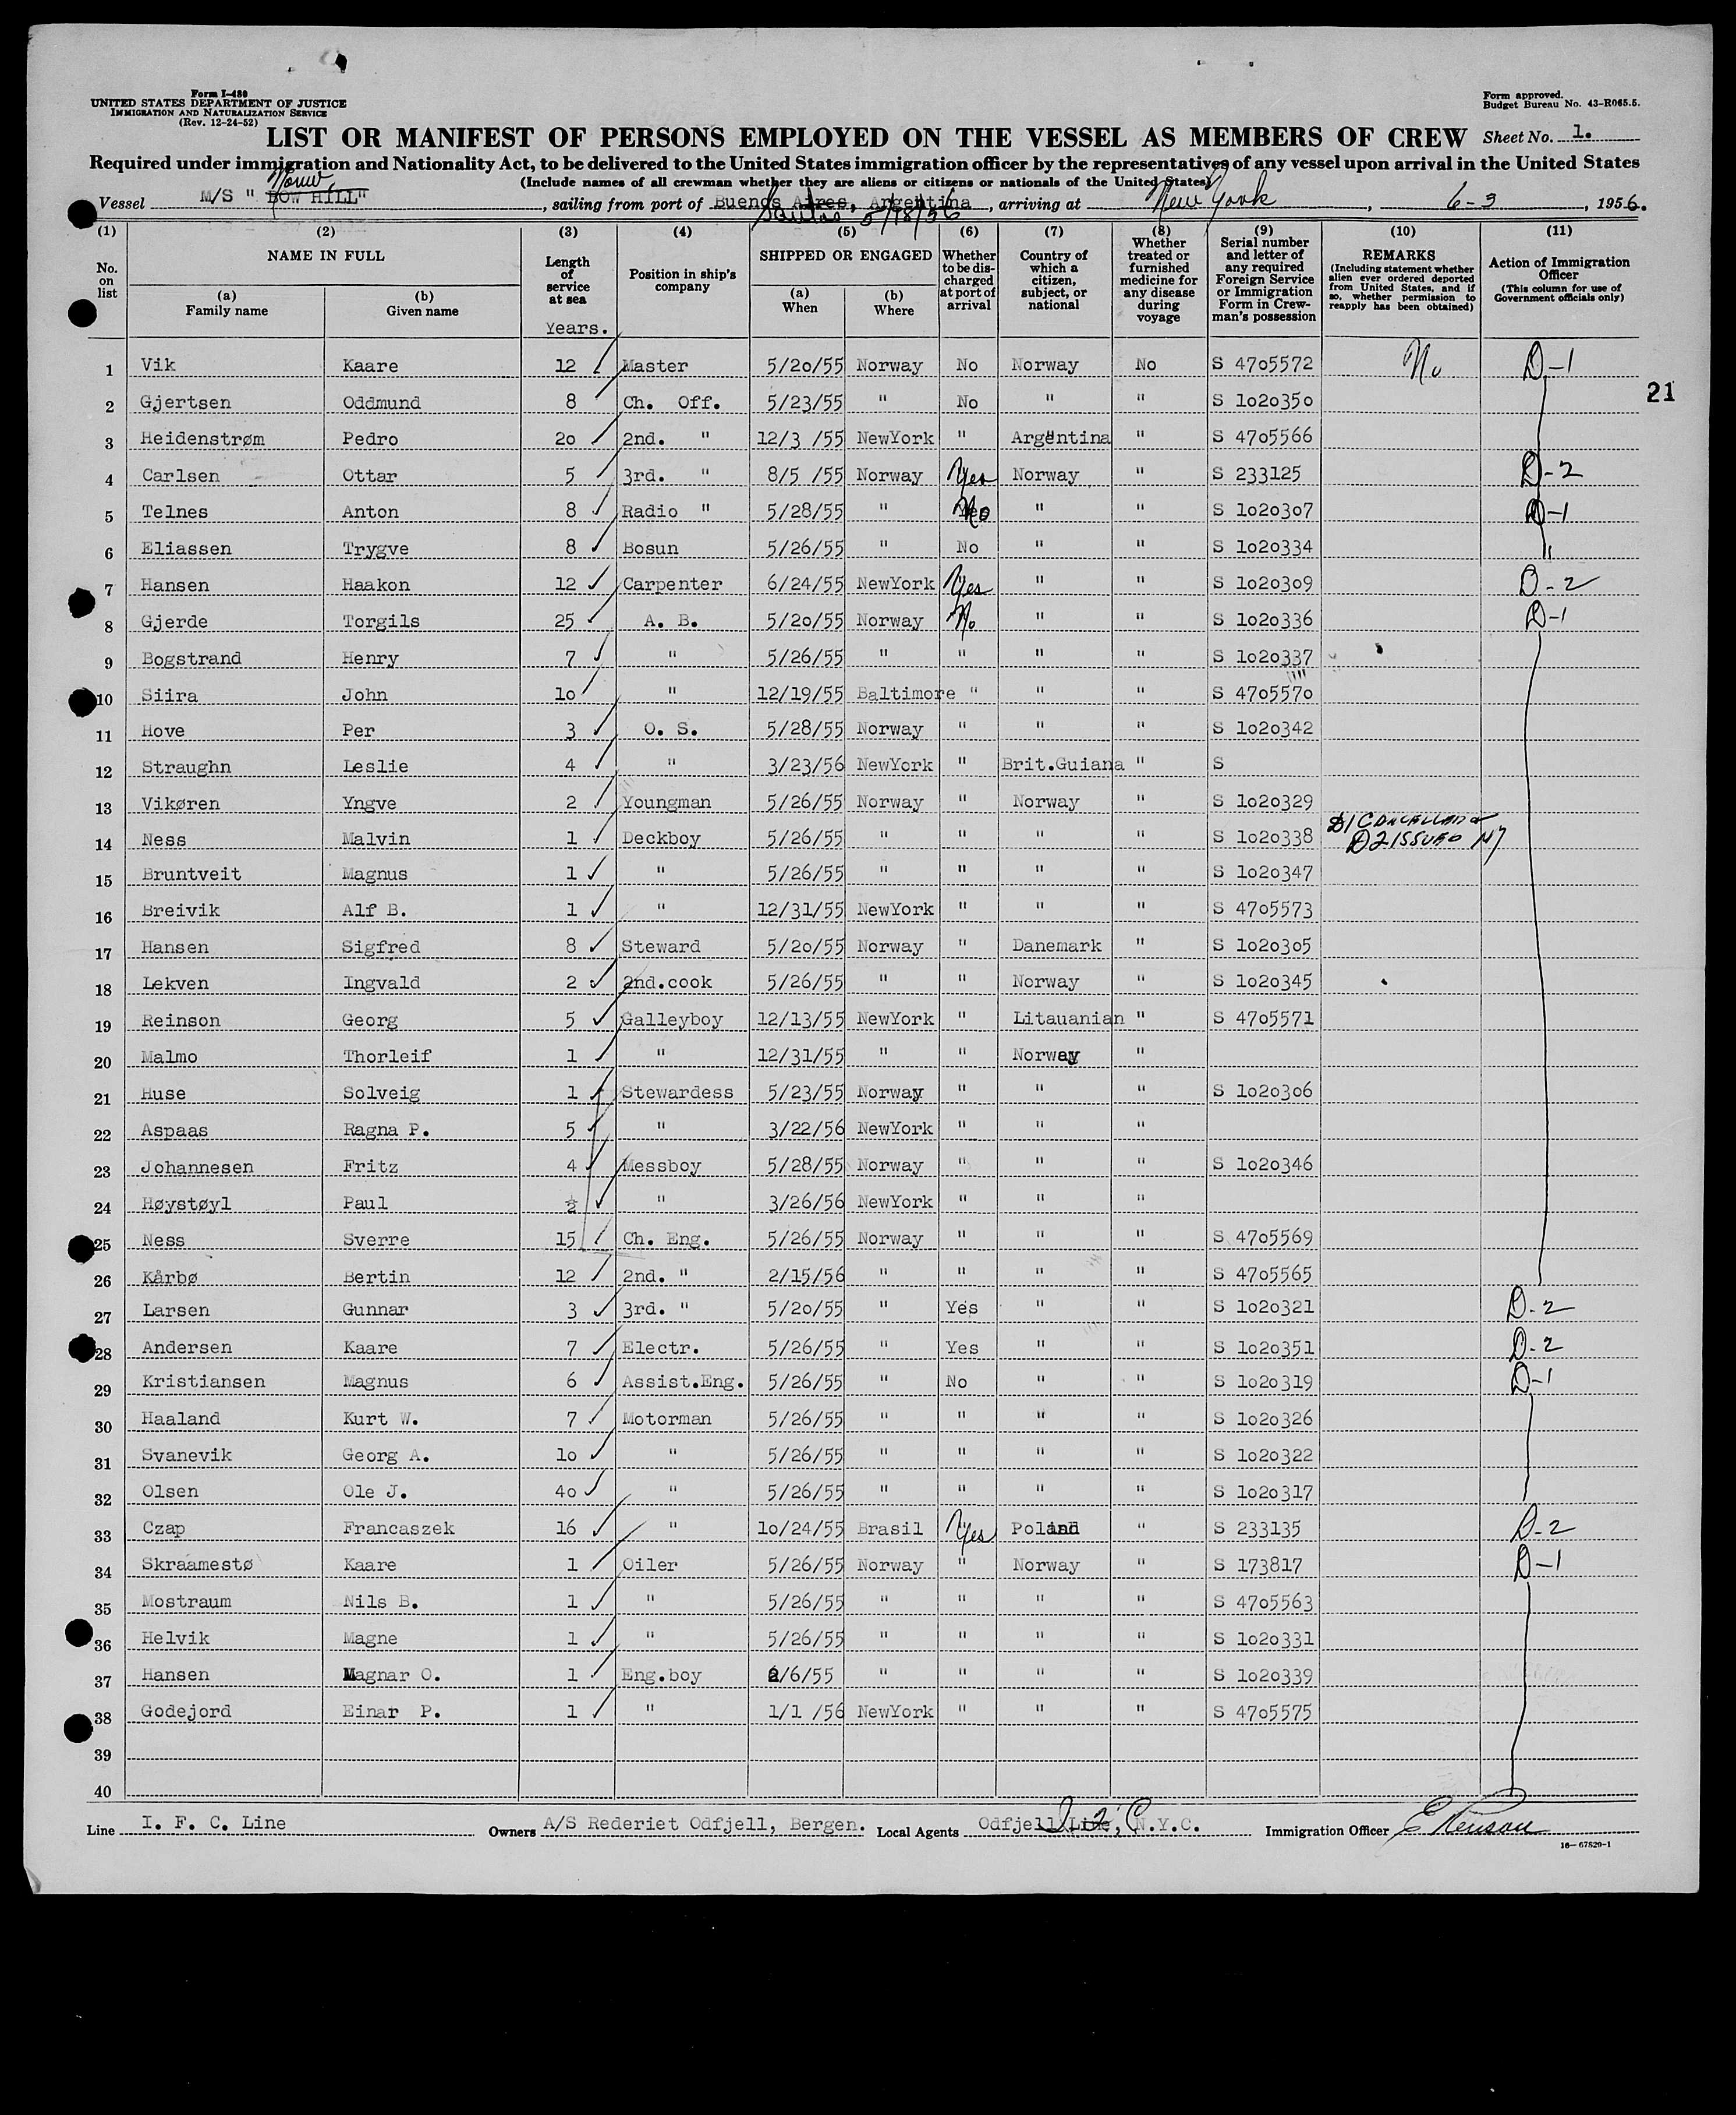 Form I-480
UNITED STATES DEPARTMENT OF JUSTICE
IMMIGRATION AND NATURALIZATION SERVICE
(Rev. 12-24-52)
Form approved.
Budget Bureau No. 43-R065.5.
LIST OR MANIFEST OF PERSONS EMPLOYED ON THE VESSEL AS MEMBERS OF CREW Sheet No. 1.
Required under immigration and Nationality Act, to be delivered to the United States immigration officer by the representatives of any vessel upon arrival in the United States
(Include names of all crewman whether they are aliens or citizens or nationals of the United States)
Vessel M/S " BOW HILL" , sailing from port of Buenos Aires, Argentina , arriving at New York , 6-3 , 1956.
Santos 5/18/56
(1) No. on list
(2) NAME IN FULL (a) Family name (b) Given name
(3) Length of service at sea Years.
(4) Position in ship's company
(5) SHIPPED OR ENGAGED (a) When (b) Where
(6) Whether to be discharged at port of arrival
(7) Country of which a citizen, subject, or national
(8) Whether treated or furnished medicine for any disease during voyage
(9) Serial number and letter of any required Foreign Service or Immigration Form in Crewman's possession
(10) REMARKS (Including statement whether alien ever ordered deported from United States, and if so, whether permission to reapply has been obtained)
(11) Action of Immigration Officer (This column for use of Government officials only)
1 Vik Kaare 12 Master 5/20/55 Norway No Norway No S 4705572 No D-1
21
2 Gjertsen Oddmund 8 Ch. Off. 5/23/55 " No " " S 1020350
3 Heidenstrøm Pedro 20 2nd. " 12/3 /55 NewYork " Argentina " S 4705566
4 Carlsen Ottar 5 3rd. " 8/5 /55 Norway Yes Norway " S 233125 D-2
5 Telnes Anton 8 Radio " 5/28/55 " No " " S 1020307 D-1
6 Eliassen Trygve 8 Bosun 5/26/55 " No " " S 1020334 "
7 Hansen Haakon 12 Carpenter 6/24/55 NewYork Yes " " S 1020309 D-2
8 Gjerde Torgils 25 A. B. 5/20/55 Norway No " " S 1020336 D-1
9 Bogstrand Henry 7 " 5/26/55 " " " " S 1020337
10 Siira John 10 " 12/19/55 Baltimore " " " S 4705570
11 Hove Per 3 O. S. 5/28/55 Norway " " " S 1020342
12 Straughn Leslie 4 " 3/23/56 NewYork " Brit.Guiana " S
13 Vikøren Yngve 2 Youngman 5/26/55 Norway " Norway " S 1020329
14 Ness Malvin 1 Deckboy 5/26/55 " " " " S 1020338 D1 CANCELLED & D2 ISSUED NY
15 Bruntveit Magnus 1 " 5/26/55 " " " " S 1020347
16 Breivik Alf B. 1 " 12/31/55 NewYork " " " S 4705573
17 Hansen Sigfred 8 Steward 5/20/55 Norway " Danemark " S 1020305
18 Lekven Ingvald 2 2nd.cook 5/26/55 " " Norway " S 1020345
19 Reinson Georg 5 Galleyboy 12/13/55 NewYork " Litauanian " S 4705571
20 Malmo Thorleif 1 " 12/31/55 " " Norway "
21 Huse Solveig 1 Stewardess 5/23/55 Norway " " " S 1020306
22 Aspaas Ragna P. 5 " 3/22/56 NewYork " " "
23 Johannesen Fritz 4 Messboy 5/28/55 Norway " " " S 1020346
24 Høystøyl Paul ½ " 3/26/56 NewYork " " "
25 Ness Sverre 15 Ch. Eng. 5/26/55 Norway " " " S 4705569
26 Kårbø Bertin 12 2nd. " 2/15/56 " " " " S 4705565
27 Larsen Gunnar 3 3rd. " 5/20/55 " Yes " " S 1020321 D-2
28 Andersen Kaare 7 Electr. 5/26/55 " Yes " " S 1020351 D-2
29 Kristiansen Magnus 6 Assist.Eng. 5/26/55 " No " " S 1020319 D-1
30 Haaland Kurt W. 7 Motorman 5/26/55 " " " " S 1020326
31 Svanevik Georg A. 10 " 5/26/55 " " " " S 1020322
32 Olsen Ole J. 40 " 5/26/55 " " " " S 1020317
33 Czap Francaszek 16 " 10/24/55 Brasil Yes Poland " S 233135 D-2
34 Skraamestø Kaare 1 Oiler 5/26/55 Norway " Norway " S 173817 D-1
35 Mostraum Nils B. 1 " 5/26/55 " " " " S 4705563
36 Helvik Magne 1 " 5/26/55 " " " " S 1020331
37 Hansen Magnar O. 1 Eng.boy /6/55 " " " " S 1020339
38 Godejord Einar P. 1 " 1/1 /56 NewYork " " " S 4705575
39
40
Line I. F. C. Line Owners A/S Rederiet Odfjell, Bergen. Local Agents Odfjell Line, N.Y.C. Immigration Officer
16-67529-1